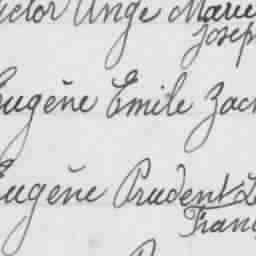 Victor Ange Marie
Joseph
Eugène Emile Zach
Eugène Prudent L
Franç